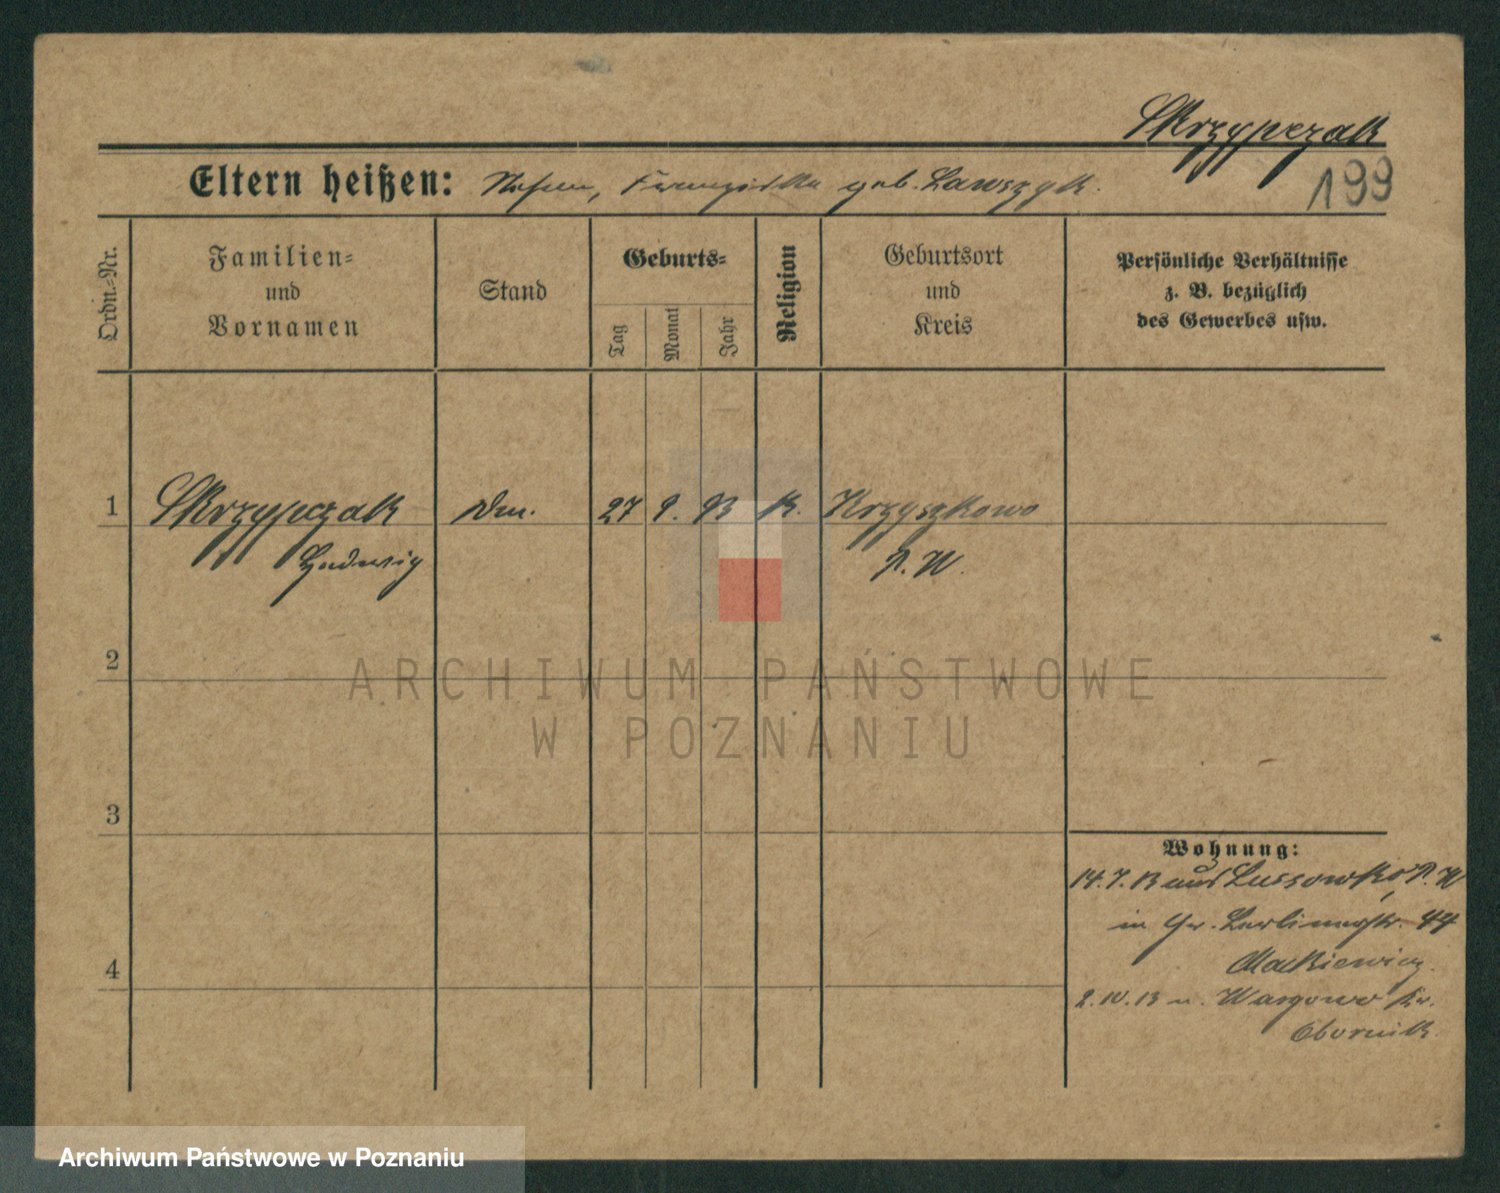 Skrzypczak
199
Eltern heißen: Franziska geb. Lawszyk.
Ordn.-Nr.
Familien-
und
Vornamen
Stand
Geburts-
Tag
Monat
Jahr
Religion
Geburtsort
und
Kreis
Persönliche Verhältnisse
z. B. bezüglich
des Gewerbes usw.
1 Skrzypczak 27 9. 93 K. Krzyszkowo
Ludwig P. W.
2
3
4
Wohnung:
14.7.13 aus Lussowko, P. W
in Gr. Berlinerstr. 44
Mackiewicz.
2. IV. 13 n. Wargowo Kr.
Obornik
ARCHIWUM PAŃSTWOWE
W POZNANIU
Archiwum Państwowe w Poznaniu